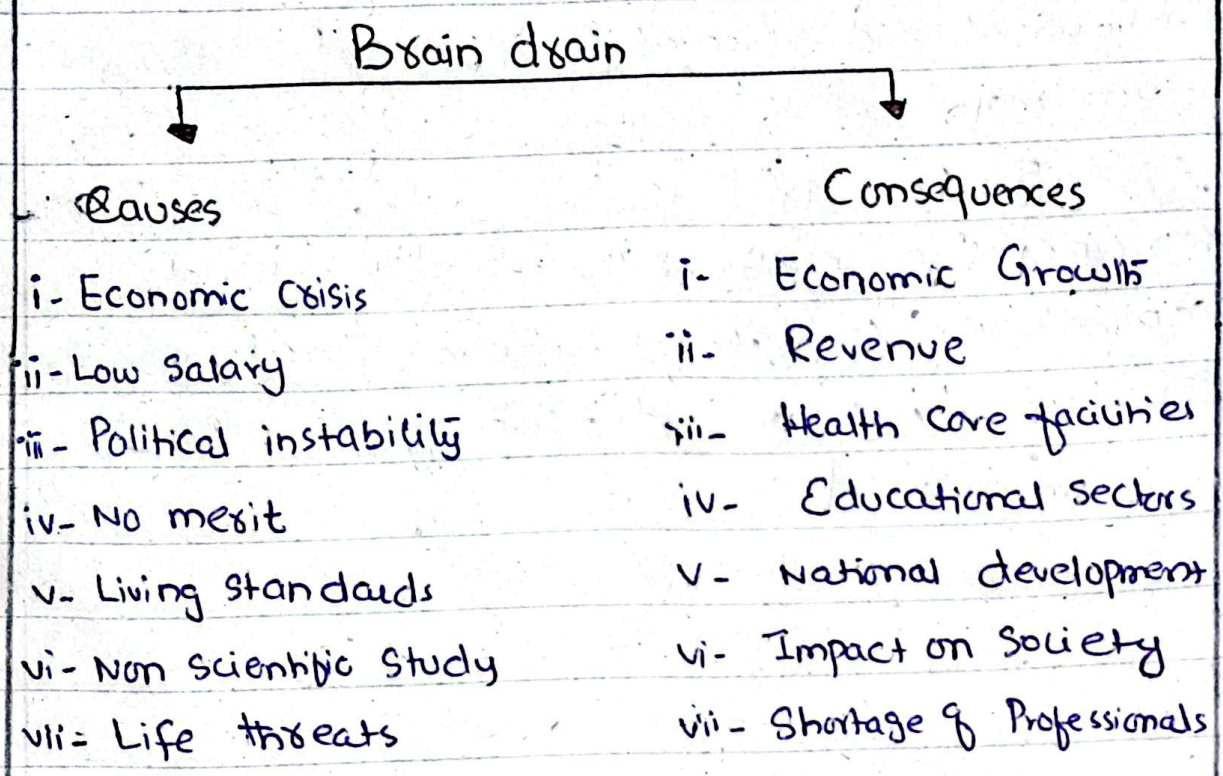 Brain drain
Causes
i- Economic Crisis
ii- Low Salary
iii- Political instability
iv- No merit
v- Living Standards
vi- Non Scientific Study
vii- Life threats
Consequences
i- Economic Growth
ii- Revenue
iii- Health Care facilities
iv- Educational Sectors
v- National development
vi- Impact on Society
vii- Shortage of Professionals